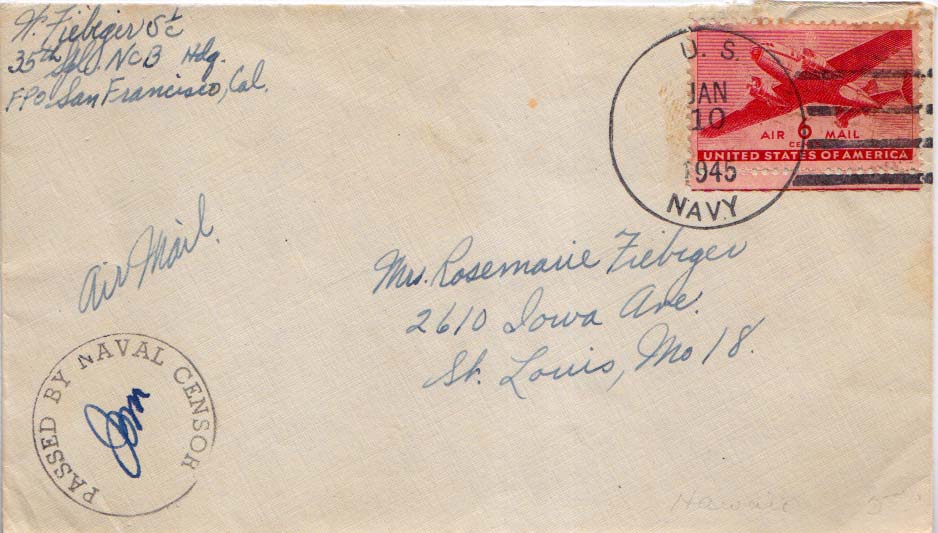 W. Fiebiger S1c
35th Spl. NCB Hdq.
FPO San Francisco, Cal.
U. S.
JAN
10
1945
NAVY
AIR 6 MAIL
CENTS
UNITED STATES OF AMERICA
Air Mail
Mrs. Rosemarie Fiebiger
2610 Iowa Ave.
St. Louis, Mo 18.
PASSED BY NAVAL CENSOR
Hawaii